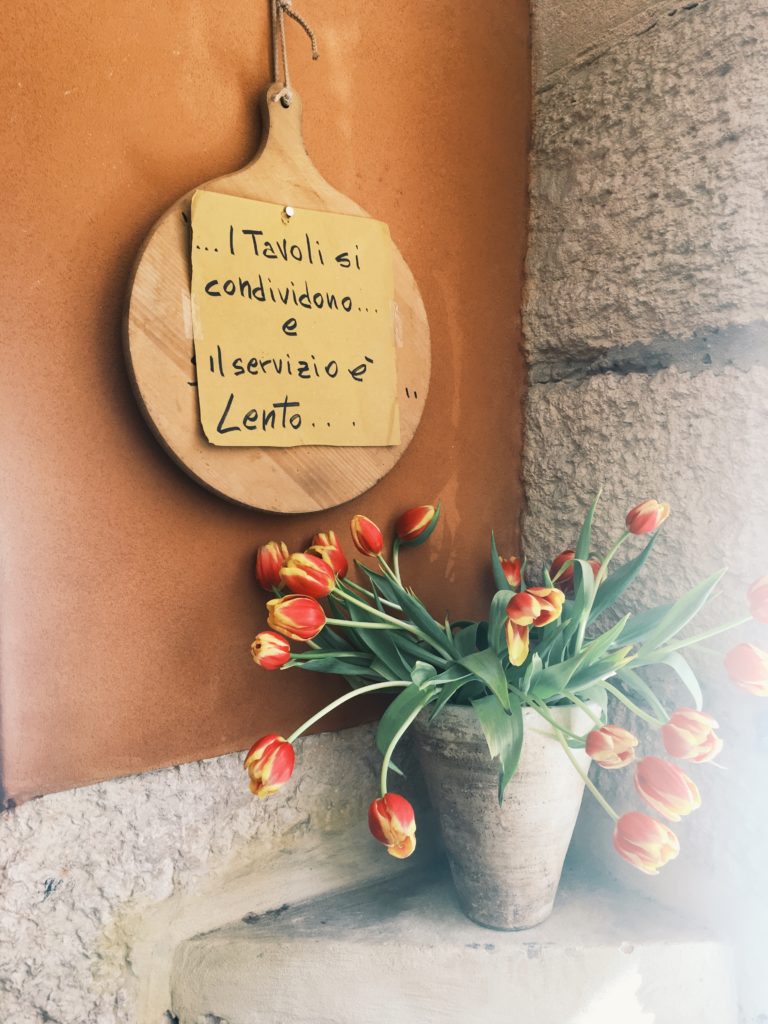 ... I Tavoli si
condividono...
e
il servizio è
Lento....
"